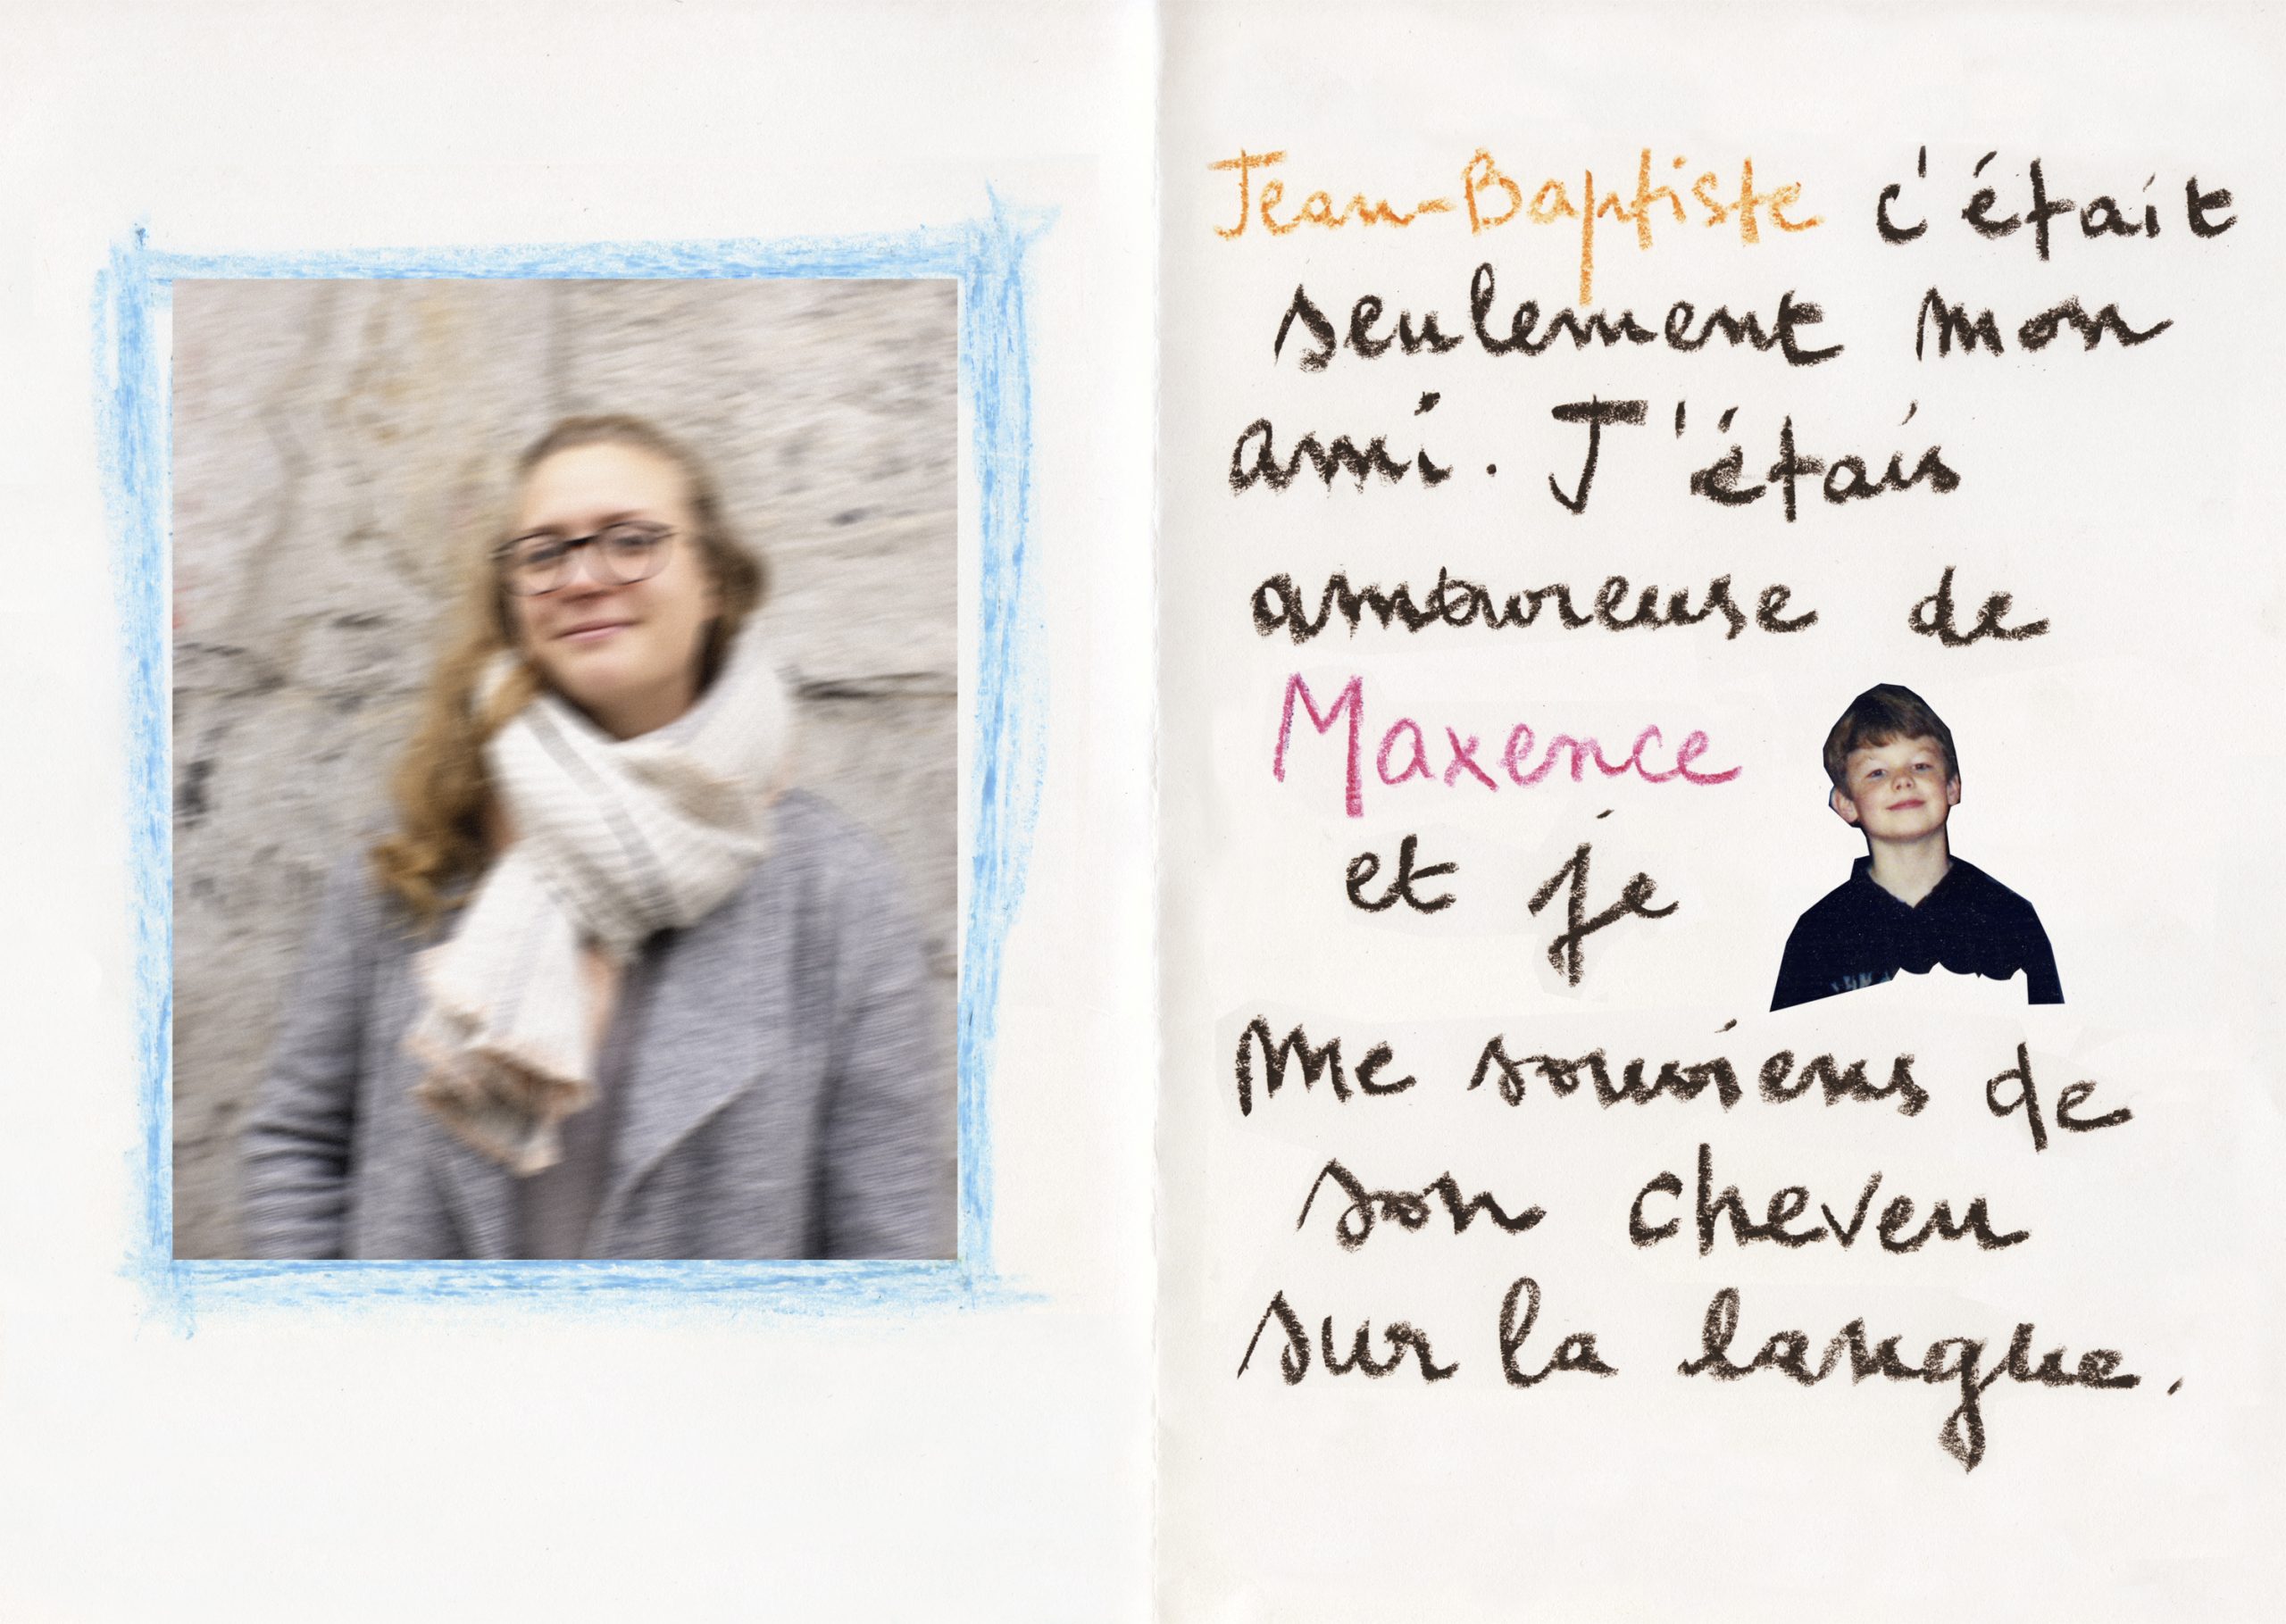 Jean-Baptiste c'était
seulement mon
ami. J'étais
amoureuse de
Maxence
et je
me souviens de
son cheveu
sur la langue.